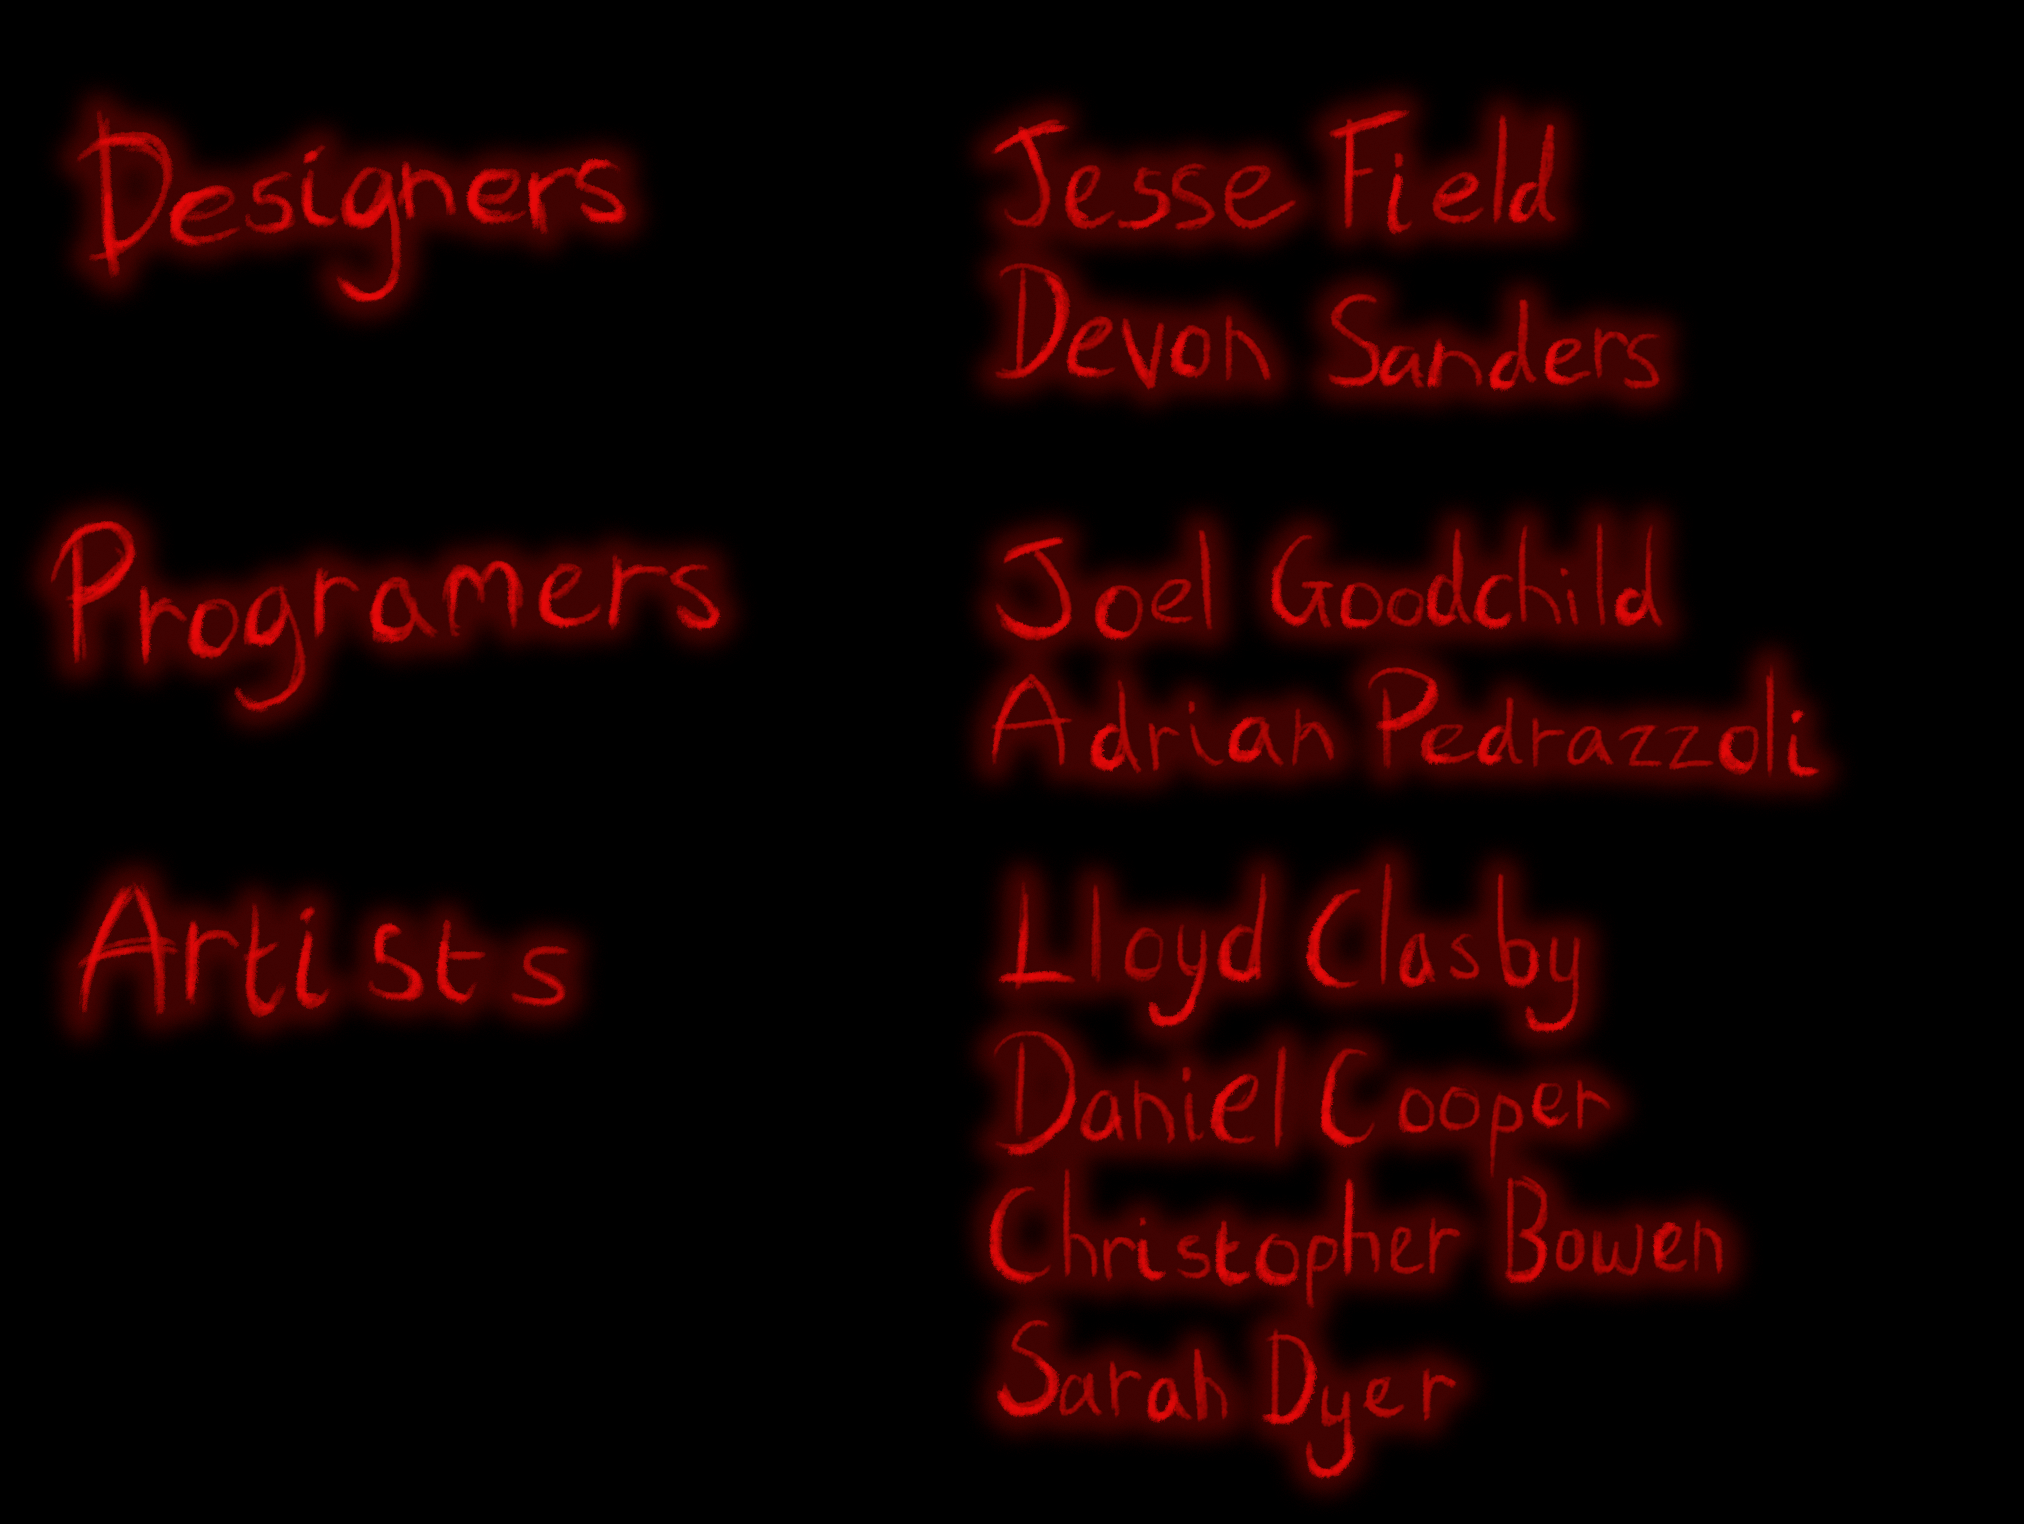 Designers Jesse Field
Devon Sanders
Programers Joel Goodchild
Adrian Pedrazzoli
Artists Lloyd Clasby
Daniel Cooper
Christopher Bowen
Sarah Dyer